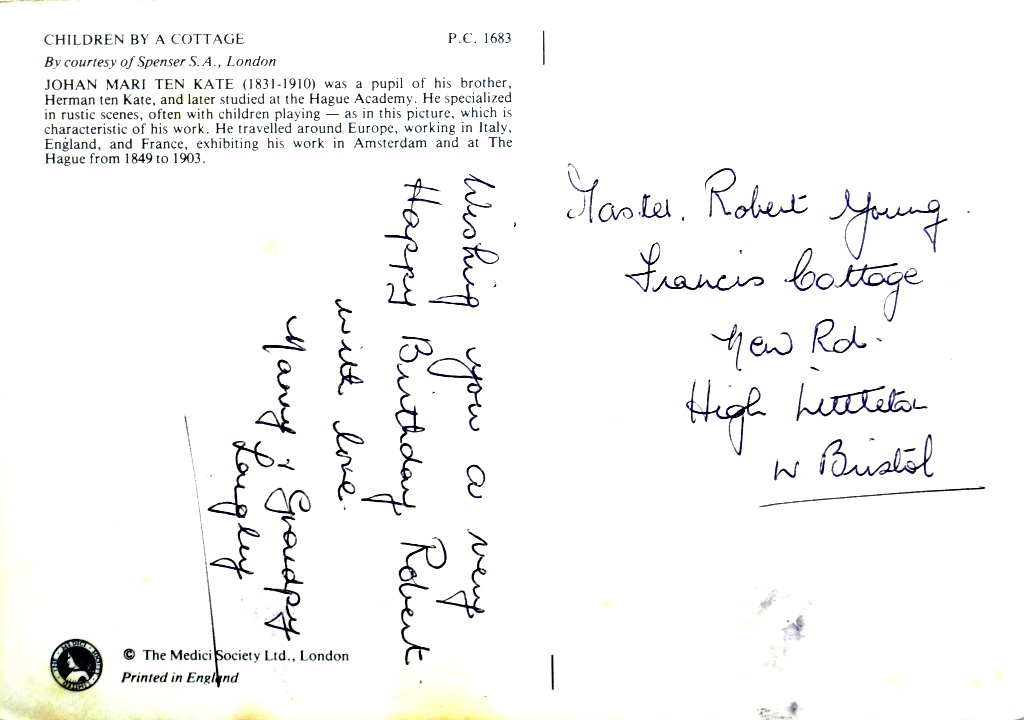 CHILDREN BY A COTTAGE P.C. 1683
By courtesy of Spenser S.A., London
JOHAN MARI TEN KATE (1831-1910) was a pupil of his brother,
Herman ten Kate, and later studied at the Hague Academy. He specialized
in rustic scenes, often with children playing — as in this picture, which is
characteristic of his work. He travelled around Europe, working in Italy,
England, and France, exhibiting his work in Amsterdam and at The
Hague from 1849 to 1903.
Wishing you a very
Happy Birthday Robert
with love.
Nanny & Grandpy
Langley
Master. Robert Young.
Francis Cottage
New Rd.
High Littleton
Nr Bristol
© The Medici Society Ltd., London
Printed in England